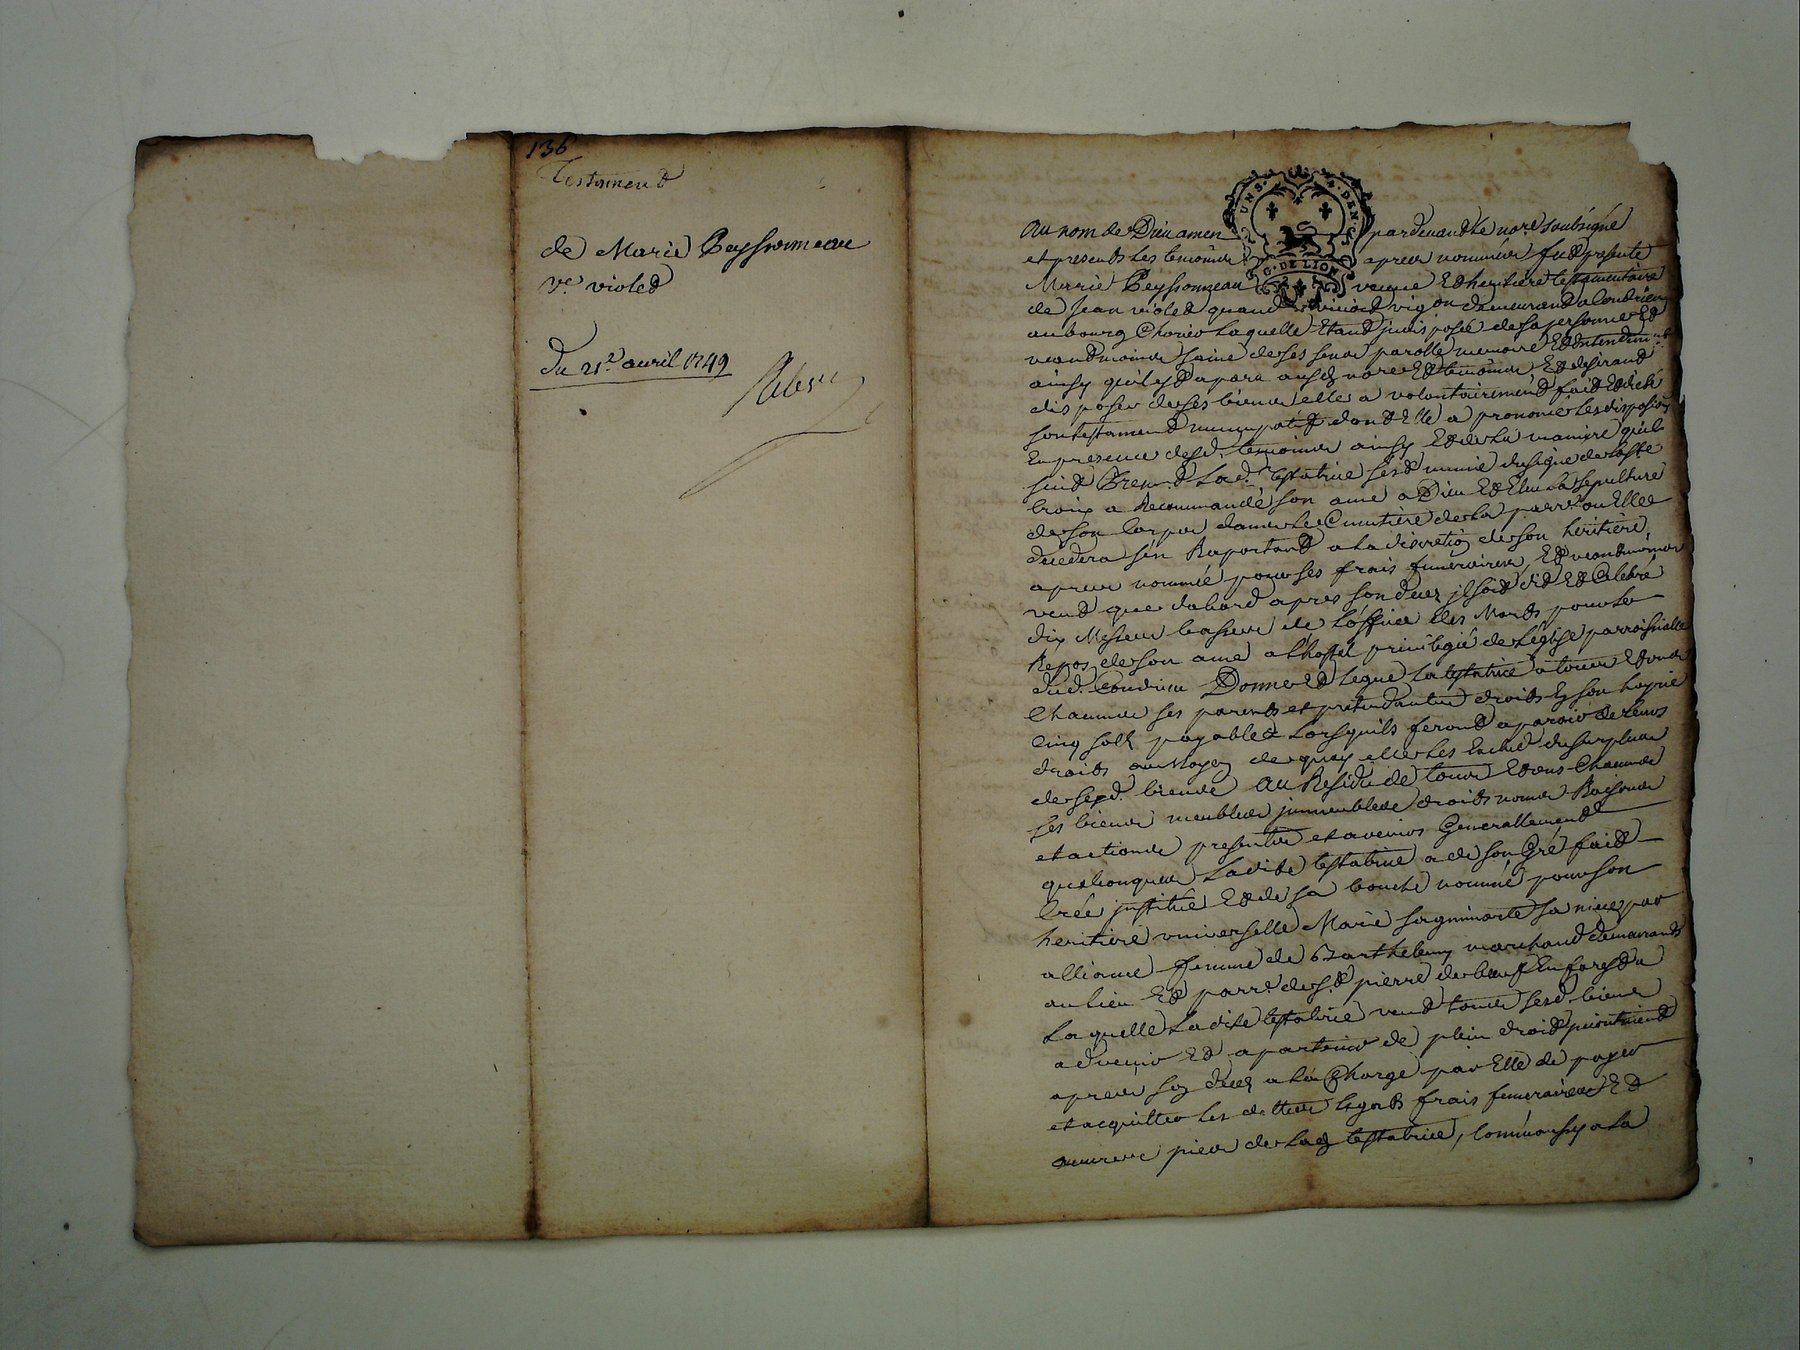 136
Testament
de Marie Peyssonneau
ve. violet
du 21e. avril 1749
UN S. 8. DEN
G. DE LION
Au nom de Dieu amen pardevant le nore soubsigné
et presents les temoins apres nommés fut presente
Marie Peyssonneau veuve Et heritiere testamentaire
de Jean violet quand vivoit vigon demeurant a Condrieu
au bourg Chorier laquelle Etant indisposée de sa personne Et
neantmoins saine de ses sens parolle memoire Et Entendement
ainsy quil est aparu ausd. nore Et temoins Et desirant
disposer de ses biens elle a volontairement fait Et dicté
son testament nuncupatif dont Elle a prononcé les dispositions
En presence desd. temoins ainsy Et de la maniere quil
suit Premt. Lad. testatrice s'est munie du signe de la ste
Croix a Recommandé son ame a Dieu Et Elu sa sepulture
de son Corps dans le Cimetiere de la parr. ou Elle
decedera s'en Raportant a la discretion de son heritiere
apres nommée pour ses frais funeraires, Et neantmoins
veut que dabord apres son deces il soit dit Et Celebré
dix Messes basses de l'office des Morts pour le
Repos de son ame a l'hostel privilegié de l'église parroissialle
dud. Condrieu Donne Et legue la testatrice a tous Et uns
Chacuns ses parents et pretendantes droits En son hoyrie
Cinq sols payables lorsquils feront aparoir de leurs
droits au moyen de quoy elle les Exclud du surplus
de sesd. biens Au Residu de tous Et uns Chacuns
ses biens meubles immeubles droits noms Raisons
et actions presents et avenirs Generallement
quelconques Ladite testatrice a de son Gré fait
Créé institué Et de sa bouche nommé pour son
heritiere universelle Marie sa niece par
alliance femme de Barthelemy marchand demeurants
au lieu Et parr. de St. pierre de boeuf En forest a
laquelle Ladite testatrice veut tous sesd. biens
advenir Et apartenir de plein droit
apres son deces a la Charge par Elle de payer
et acquitter les dettes legats frais funeraires Et
oeuvres pies de lad. testatrice, Comm'aussy a la